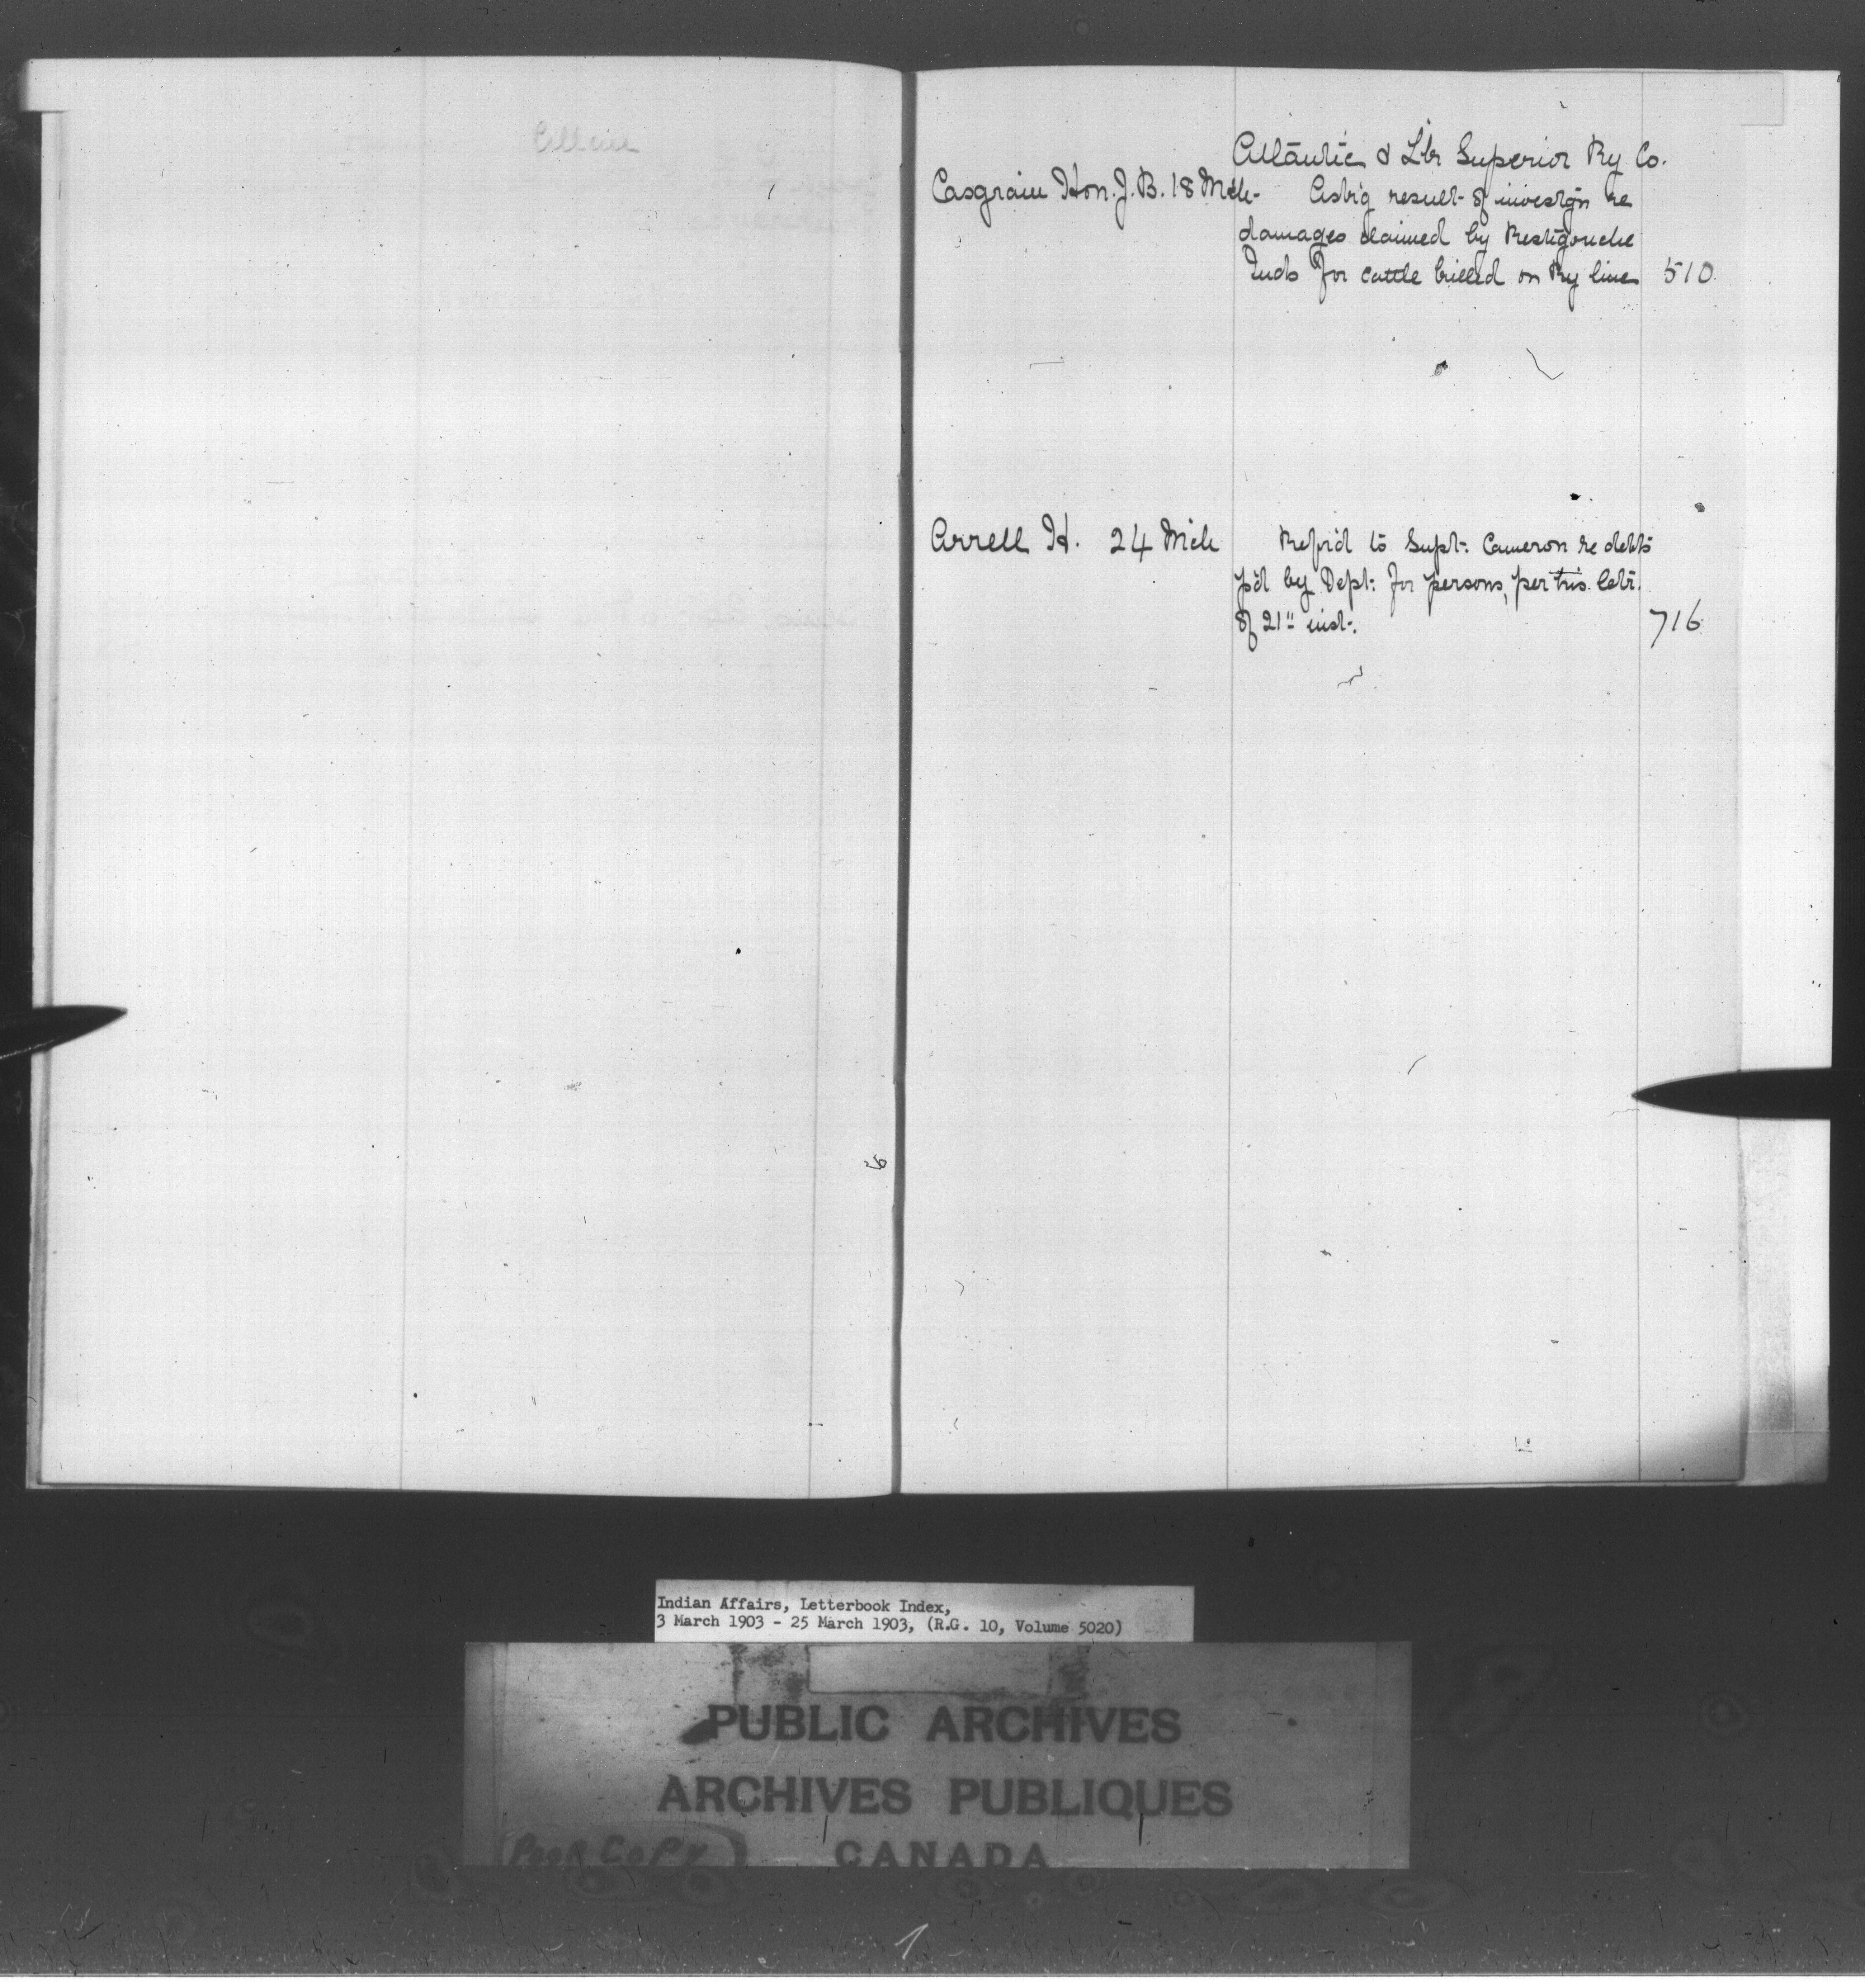 Atlantic & Lke Superior Ry Co.
Casgrain Hon. J. B. 18 Mch - Ask'g result of investig'n re
damages claimed by Restigouche
Inds for cattle killed on Ry line 510
Arrell H. 24 Mch Refer'd to Supt. Cameron re debts
p'd by Dept. for persons, per his letr.
of 21st inst. 716
Indian Affairs, Letterbook Index,
3 March 1903 - 25 March 1903, (R.G. 10, Volume 5020)
PUBLIC ARCHIVES
ARCHIVES PUBLIQUES
CANADA
POOR COPY
1